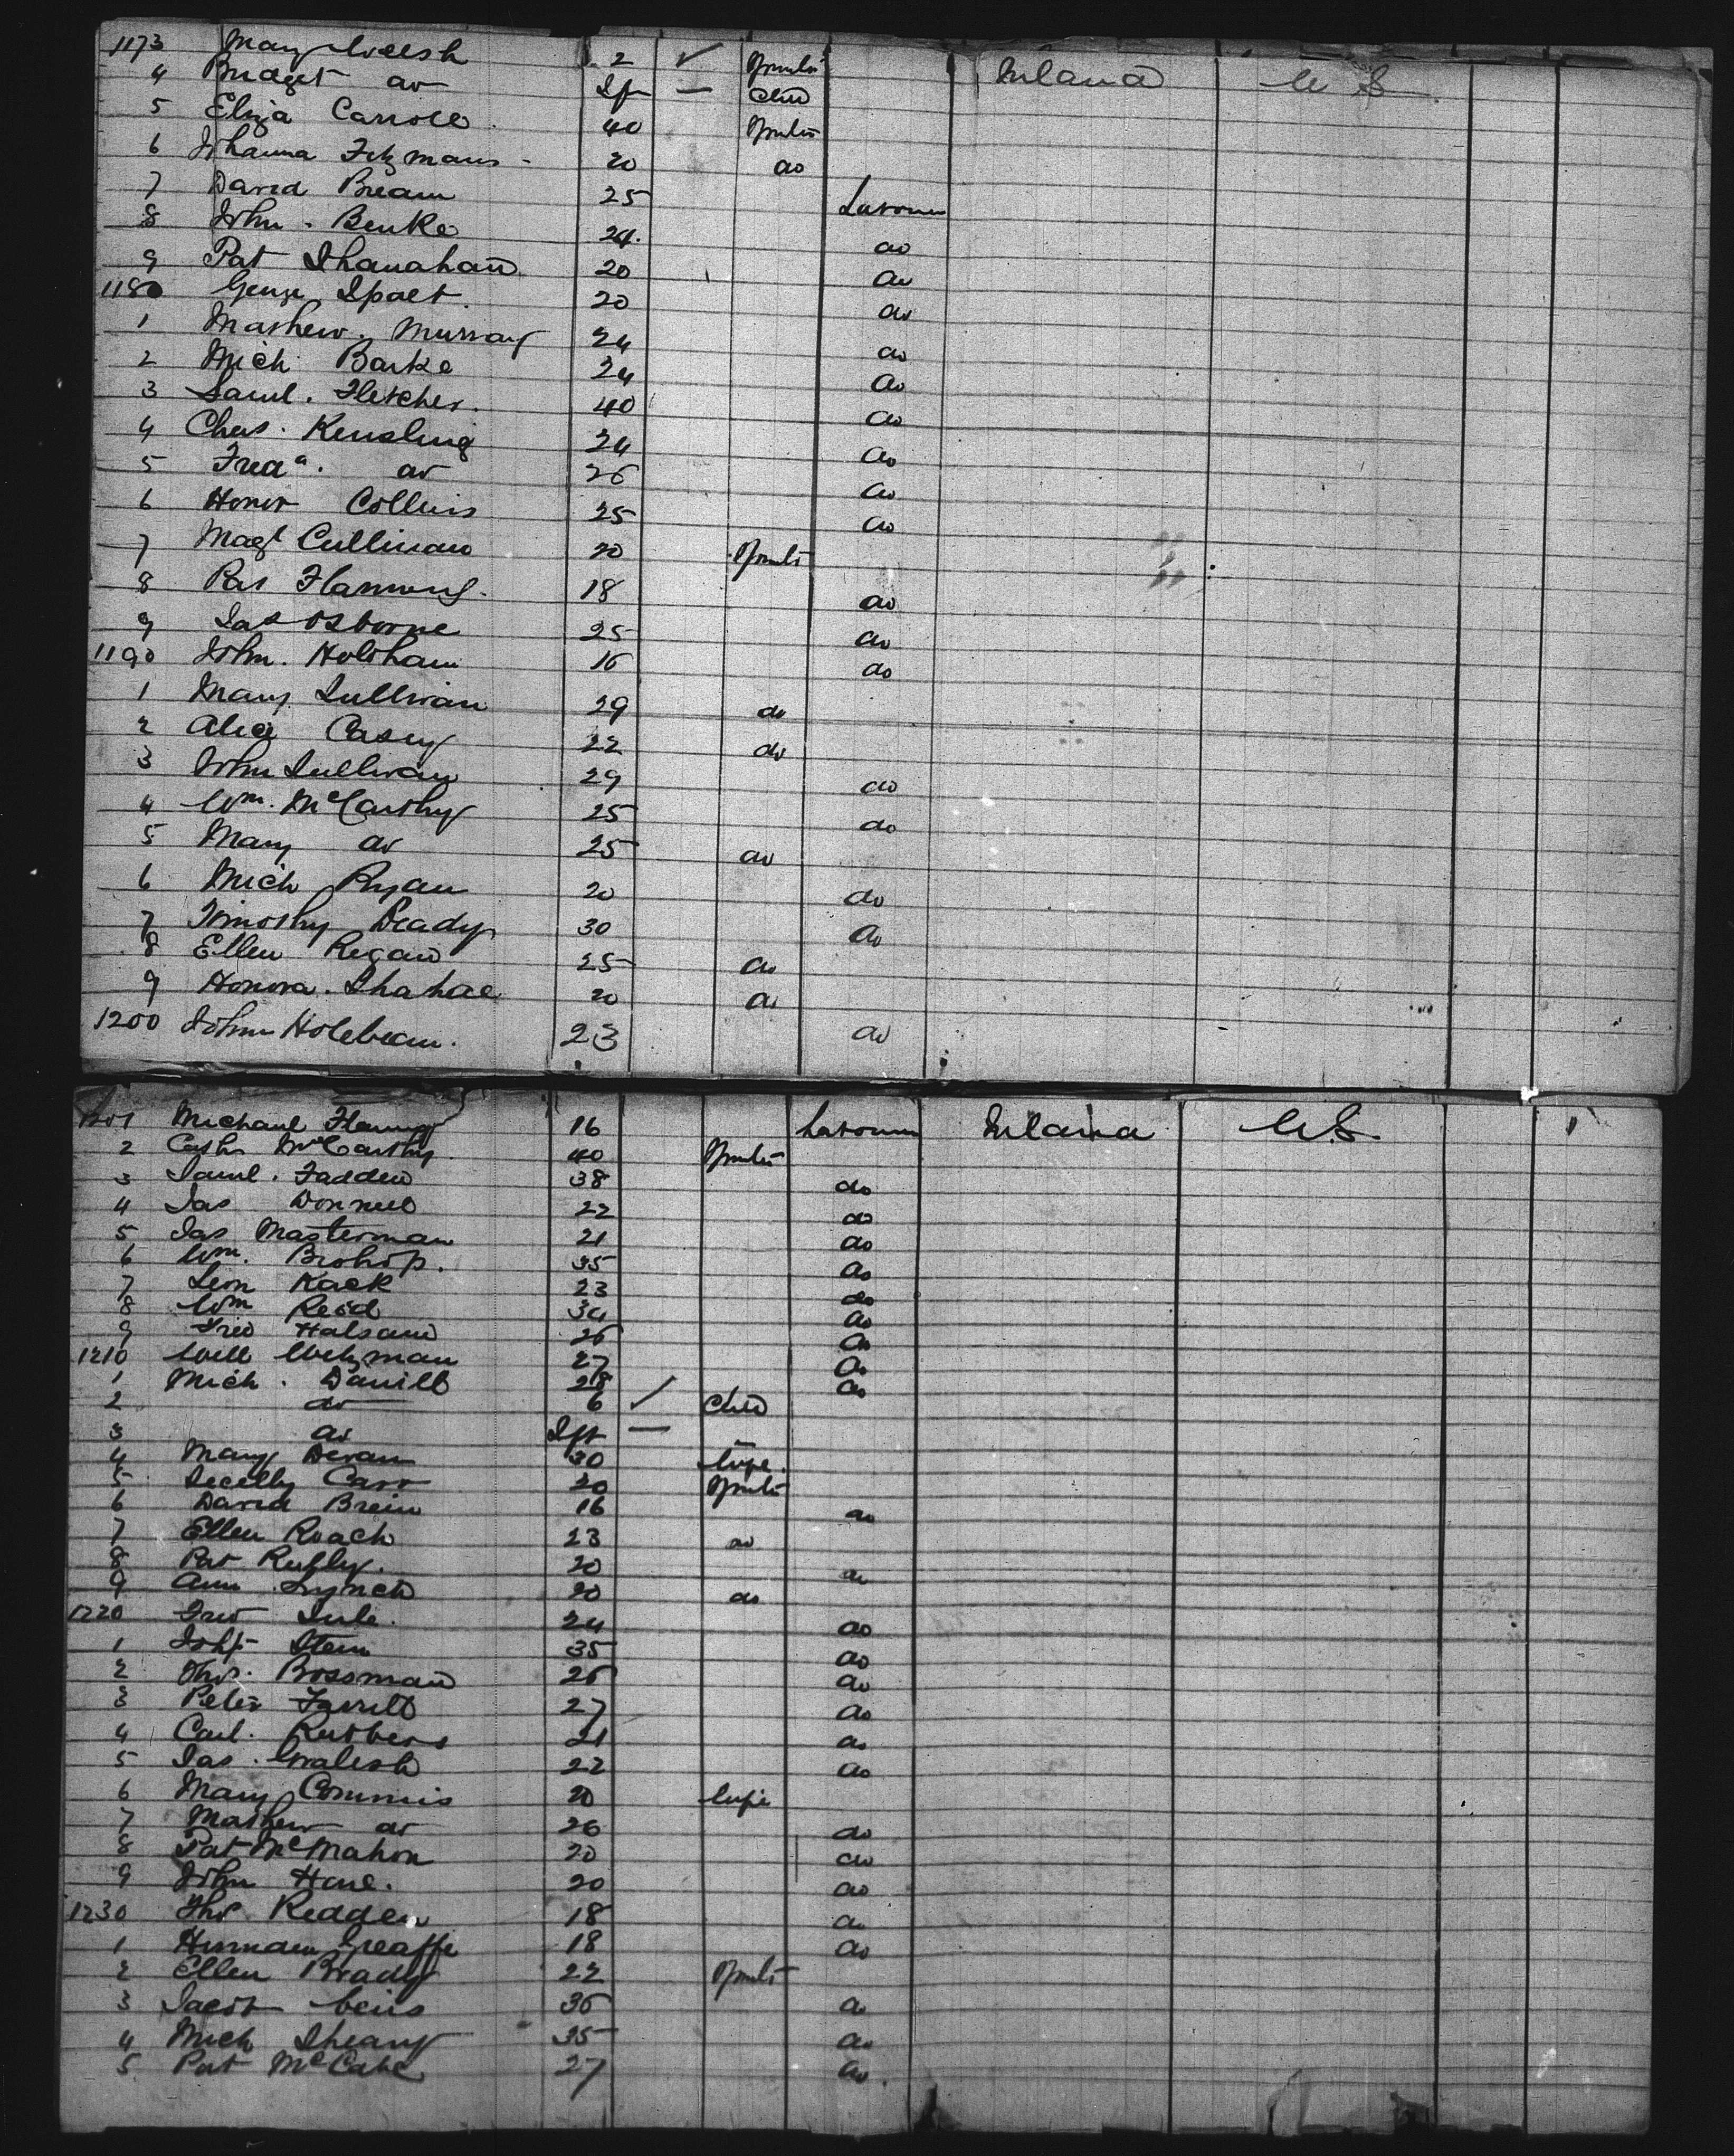 1173 Mary Welsh 2 ✓ Spinster Ireland U S
4 Bridget do Inft — child
5 Eliza Carroll 40 Spinster
6 Johanna Fitzmaus 20 do
7 David Bream 25 Labourer
8 John Burke 24 do
9 Pat Shanahan 20 do
1180 George Spaet 20 do
1 Mathew Murray 24 do
2 Mich Barke 24 do
3 Saml. Fletcher 40 do
4 Chas. Kensling 24 do
5 Fred do 26 do
6 Honor Collins 25 do
7 Magt Cullinan 20 Spinster
8 Pat Flannery 18 do
9 Jas Osborne 25 do
1190 John Holoham 16 do
1 Mary Sullivan 29 do
2 Alice Casey 22 do
3 John Sullivan 29 do
4 Wm. McCarthy 25 do
5 Mary do 25 do
6 Mich Ryan 20 do
7 Timothy Deady 30 do
8 Ellen Regan 25 do
9 Honora 20 do
1200 John Holebean 23 do
1201 Michael Fleming 16 Labourer Ireland U.S.
2 Cath McCarthy 40 Spinster
3 Saml. Fadden 38 do
4 Jas Donnell 22 do
5 Jas Masterman 21 do
6 Wm. Brohop 35 do
7 Leon Kack 23 do
8 Wm Reid 34 do
9 Fred Halsand 26 do
1210 Will Witzman 27 do
1 Mich. Daniell 28 do
2 do 6 ✓ child
3 do Inft —
4 Mary Devan 30 wife
5 Carr 20 Spinster
6 David Brein 16 do
7 Ellen Roach 23 do
8 Pat 20 do
9 Ann Lynch 20 do
1220 Fred 24 do
1 Joh Stein 35 do
2 Thos. Bossman 26 do
3 Peter Farrell 27 do
4 Carl. 21 do
5 Jas. Walesh 22 do
6 Mary Commis 20 wife
7 Mathew do 26 do
8 Pat McMahon 20 do
9 John Hare 20 do
1230 Thos Redden 18 do
1 Herman Greaffe 18 do
2 Ellen Brady 22 Spinster
3 Jacob 36 do
4 Mich Sheary 35 do
5 Pat McCabe 27 do